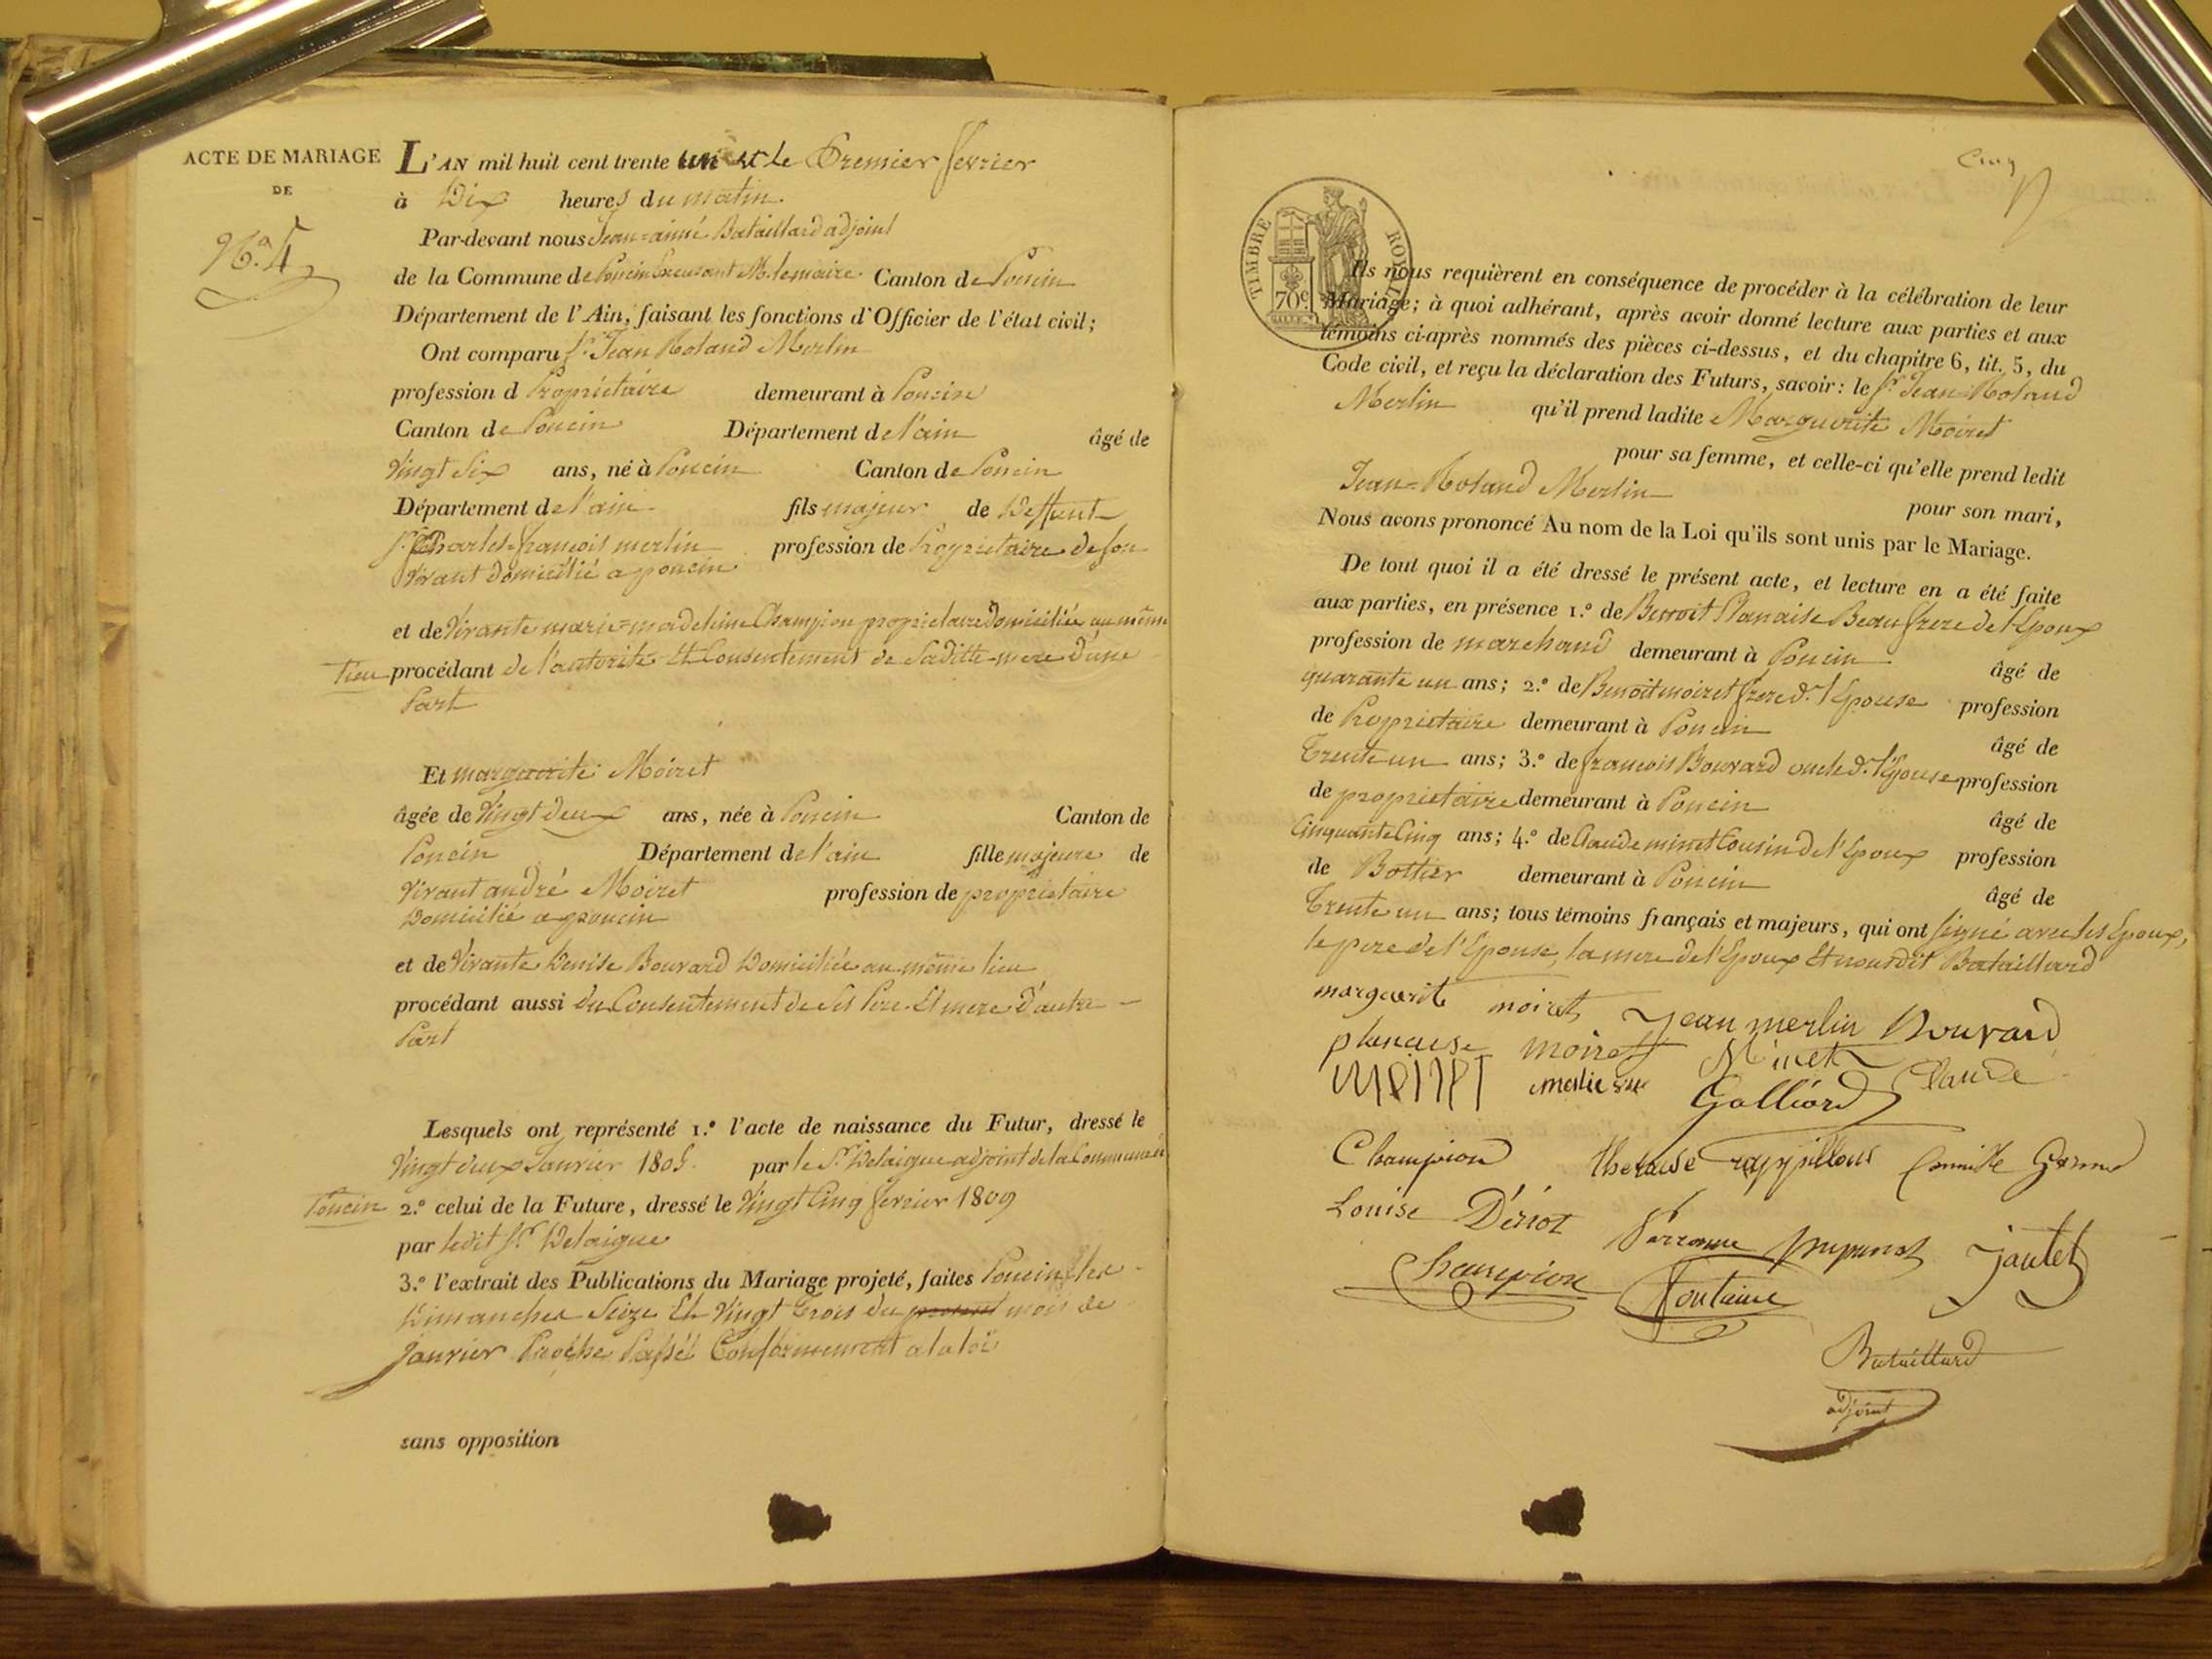 ACTE DE MARIAGE
DE
N.o 4
L'AN mil huit cent trente un et le Premier fevrier
à Dix heures du matin
Par-devant nous Jean=aimé Bataillard adjoint
de la Commune de Poncin M. le maire Canton de Poncin
Département de l'Ain, faisant les fonctions d'Officier de l'état civil;
Ont comparu Sr. Jean Roland Merlin
profession d Propriétaire demeurant à Poncin
Canton de Poncin Département de l'ain âgé de
Vingt Six ans, né à Poncin Canton de Poncin
Département de l'ain fils majeur de Deffunt
Sr. Charles=françois merlin profession de Propriétaire de son
Vivant Domicilié a poncin
et de Vivante marie=madeleine Champion propriétaire Domiciliée au même
lieu procédant de l'autorité Et Consentement de Saditte mere D'une
Part
Et marguerite Moiret
âgée de Vingt Deux ans, née à Poncin Canton de
Poncin Département de l'ain fille majeure de
Vivant andré Moiret profession de propriétaire
Domicilié a poncin
et de Vivante Denise Bouvard Domiciliée au même lieu
procédant aussi du Consentement de Ses Pere Et mere D'autre
Part
Lesquels ont représenté 1.º l'acte de naissance du Futur, dressé le
Vingt deux Janvier 1805 par le Sr. Delaigue adjoint de la Commune de
Poncin 2.º celui de la Future, dressé le Vingt Cinq fevrier 1809
par ledit Sr. Delaigue
3.º l'extrait des Publications du Mariage projeté, faites Poncin les
Dimanches Seize Et Vingt Trois du present mois de
Janvier Proche Passé Conformement a la loi
sans opposition
Cinq
TIMBRE ROYAL
70c.
Ils nous requièrent en conséquence de procéder à la célébration de leur
Mariage; à quoi adhérant, après avoir donné lecture aux parties et aux
témoins ci-après nommés des pièces ci-dessus, et du chapitre 6, tit. 5, du
Code civil, et reçu la déclaration des Futurs, savoir: le Sr. Jean=Roland
Merlin qu'il prend ladite Marguerite Moiret
pour sa femme, et celle-ci qu'elle prend ledit
Jean=Roland Merlin pour son mari,
Nous avons prononcé Au nom de la Loi qu'ils sont unis par le Mariage.
De tout quoi il a été dressé le présent acte, et lecture en a été faite
aux parties, en présence 1.º de Benoit Planaise Beau frere de l'Epoux
profession de marchand demeurant à Poncin âgé de
quarante un ans; 2.º de Benoit moiret frere d. l'Epouse profession
de Propriétaire demeurant à Poncin âgé de
Trente un ans; 3.º de françois Bouvard oncle d. l'Epouse profession
de propriétaire demeurant à Poncin âgé de
Cinquante Cinq ans; 4.º de Claude minet Cousin de l'Epoux profession
de Bottier demeurant à Poncin âgé de
Trente un ans; tous témoins français et majeurs, qui ont signé avec les Epoux,
le pere de l'Epouse, la mere de l'Epoux Et nousdit Bataillard
marguerite moiret Jean merlin Bouvard
planaise moiret Minet
Claude
Galliard
Champion
Louise Dériot
Champion Fontaine Jantet
Bataillard
adjoint